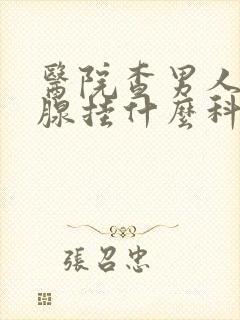 醫院查男人
腺挂什麼科
張召忠